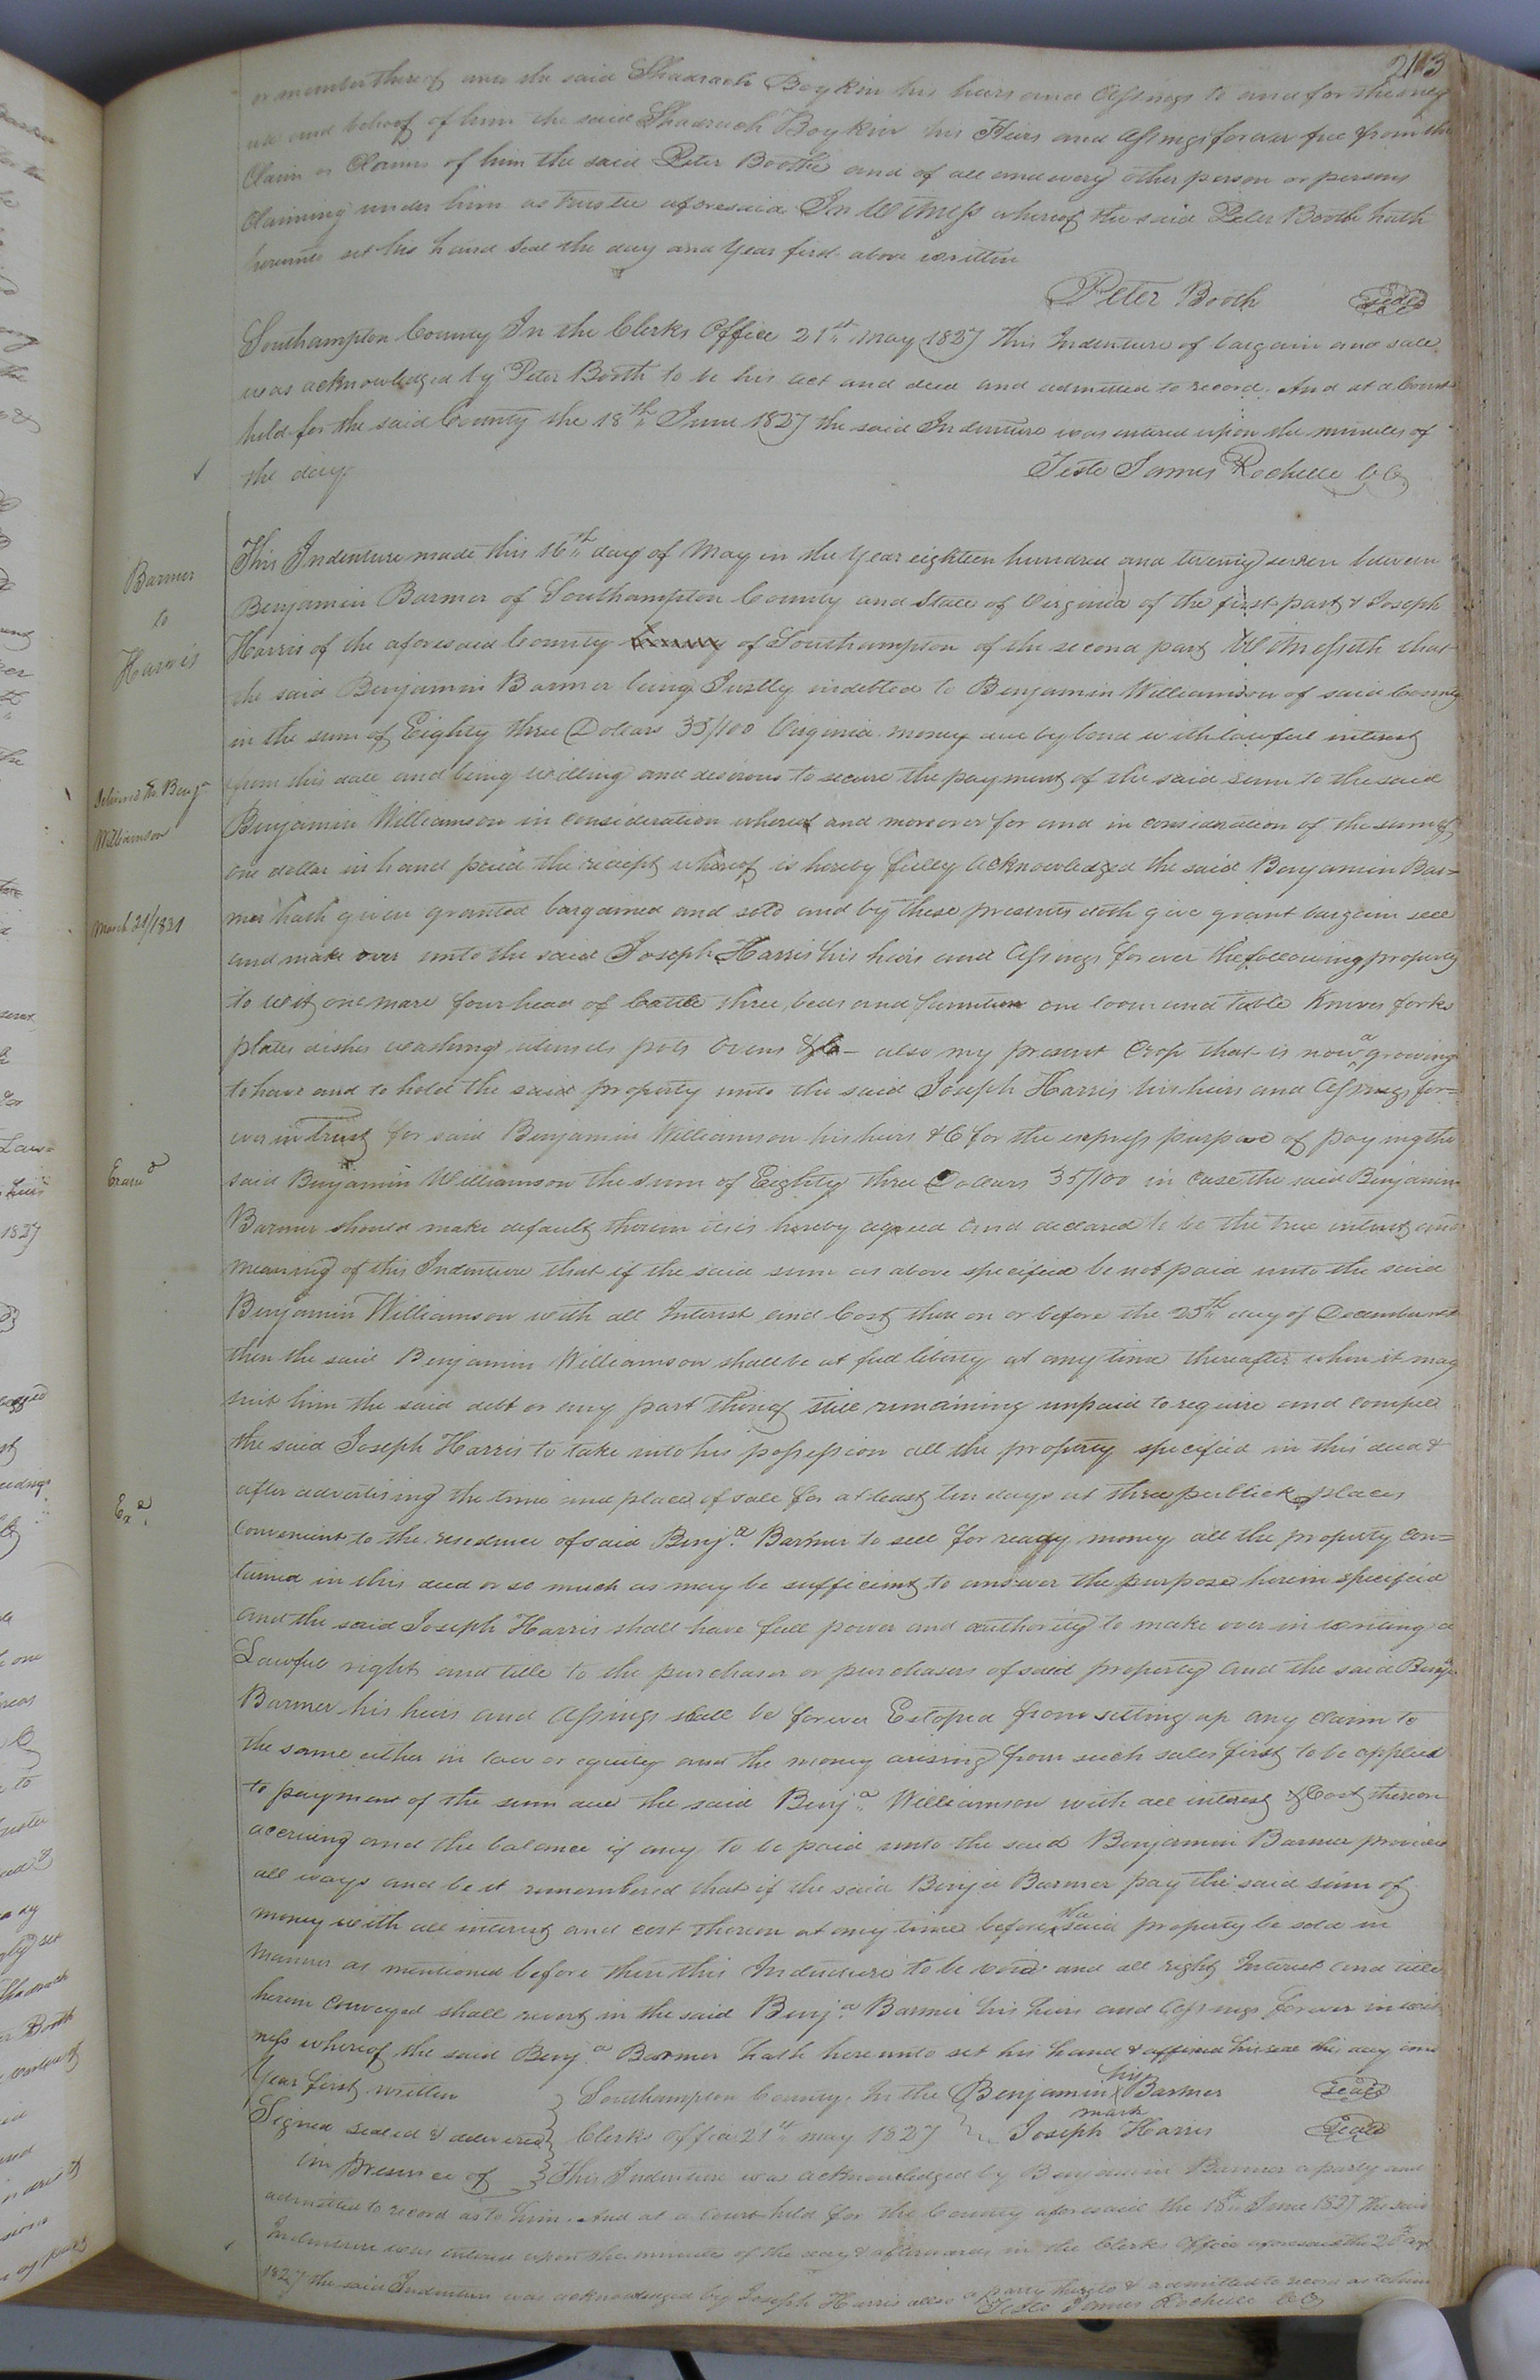 213
or member thereof unto the said Shadrach Boykin his heirs and Assings to and for the only
use and behoof of him the said Shadrach Boykin his Heirs and Assings forever free from the
Claim or Claims of him the said Peter Boothe and of all and every other person or persons
Claiming under him as trustee aforesaid In Witness whereof the said Peter Booth hath
hereunto set his hand Seal the day and Year first above written
Peter Booth seal
Southampton County In the Clerks Office 21st May 1827 This Indenture of bargain and sale
was acknowledged by Peter Booth to be his act and deed and admitted to record. And at a Court
held for the said County the 18th June 1827 the said Indenture was entered upon the minutes of
the day.
Teste James Rochelle CC
Barmer
to
Harris
This Indenture made this 16th day of May in the Year eighteen hundred and twenty seven between
Benjamin Barmer of Southampton County and State of Virginia of the first part & Joseph
Harris of the aforesaid County County of Southampton of the second part Witnesseth that
the said Benjamin Barmer being Justly indebted to Benjamin Williamson of said County
in the sum of Eighty three Dollars 35/100 Virginia money due by bond with lawful interest
from this date and being willing and desirous to secure the payment of the said sum to the said
Delivered to Benja
Williamson
March 21/1831
Benjamin Williamson in consideration whereof and moreover for and in consideration of the sum of
one dollar in hand paid the receipt whereof is hereby fully acknowledged the said Benjamin Bar=
mer hath given granted bargained and sold and by these presents doth give grant bargain sell
and make over unto the said Joseph Harris his heirs and Assings forever the following property
to wit one mare four head of Cattle three beds and furniture one loom and table Knives forks
plates dishes washing utensils pots Ovens &c— also my present Crop that is now a growing
to have and to hold the said property unto the said Joseph Harris his heirs and Assings for=
ever in trust for said Benjamin Williamson his heirs &C for the express purpose of paying the
Examd
said Benjamin Williamson the sum of Eighty three Dollars 35/100 in Case the said Benjamin
Barmer should make default therein it is hereby agreed and declared to be the true intent and
meaning of this Indenture that if the said sum as above specified be not paid unto the said
Benjamin Williamson with all Interest and Cost there on or before the 25th day of December next
then the said Benjamin Williamson shall be at full liberty at any time thereafter when it may
suit him the said debt or any part thereof still remaining unpaid to require and compel
the said Joseph Harris to take into his possession all the property specified in this deed &
Exd
after advertising the time and place of sale for at least ten days at three publick places
Convenient to the residence of said Benja Barmer to sell for ready money all the property con=
tained in this deed or so much as may be sufficient to answer the purpose herein specified
and the said Joseph Harris shall have full power and authority to make over in writing a
Lawful right and title to the purchaser or purchasers of said property and the said Benja
Barmer his heirs and Assings shall be forever Estoped from setting up any claim to
the same either in law or equity and the money arising from such sales first to be applied
to payment of the sum due the said Benja Williamson with all interest & Cost thereon
accruing and the balance if any to be paid unto the said Benjamin Barmer provided
all ways and be it remembered that if the said Benja Barmer pay the said sum of
money with all interest and cost thereon at any time before the said property be sold in
manner as mentioned before then this Indenture to be void and all right Interest and title
herein conveyed shall revert in the said Benja Barmer his heirs and Assings forever in wit
ness whereof the said Benja Barmer hath hereunto set his hand & affixed his seal the day and
Year first written
Signed sealed & delivered
in presence of
Benjamin his X mark Barmer seal
Joseph Harris Seal
Southampton County. In the
Clerks office 21st may 1827
This Indenture was acknowledged by Benjamin Barmer a party and
admitted to record as to him. And at a Court held for the County aforesaid the 18th June 1827 the said
Indenture was entered upon the minutes of the day & afterwards in the Clerks Office aforesaid the 20th
1827 the said Indenture was acknowledged by Joseph Harris also a party thereto & admitted to record as to him
Teste James Rochelle CC